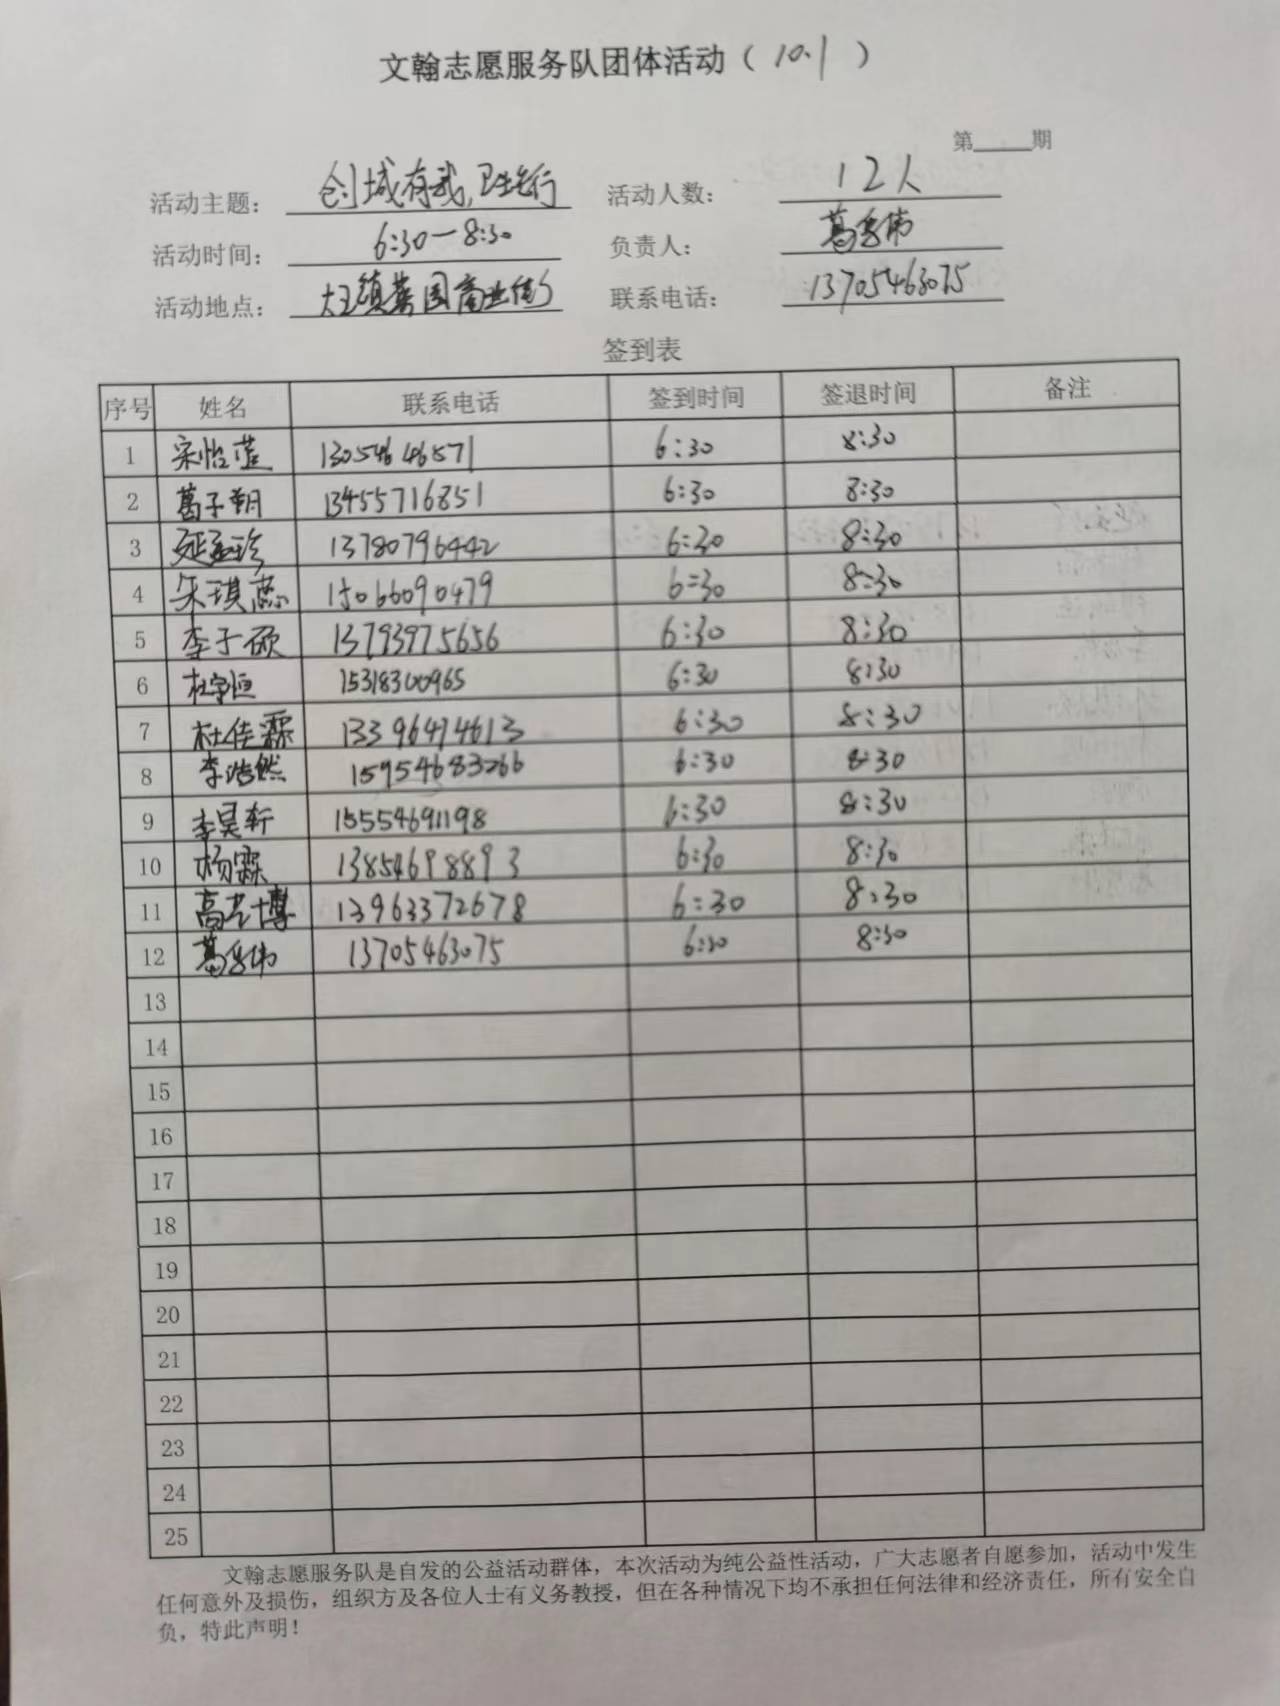 文翰志愿服务队团体活动（10.1）
第____期
活动主题：创城有我,卫生行 活动人数：12人
活动时间：6:30—8:30 负责人：葛岳伟
活动地点：大王镇龚园商业街 联系电话：13705463075
签到表
序号 姓名 联系电话 签到时间 签退时间 备注
1 宋怡蓝 13054646571 6:30 8:30
2 葛子朝 13455716851 6:30 8:30
3 延孟珍 13780796442 6:30 8:30
4 朱琪蕊 15066090479 6:30 8:30
5 李子硕 13793975656 6:30 8:30
6 杜宇恒 15318300965 6:30 8:30
7 杜佳霖 13396474613 6:30 8:30
8 李浩然 15954683266 6:30 8:30
9 李昊轩 15554691198 6:30 8:30
10 杨霖 13854698893 6:30 8:30
11 高艺博 13963372678 6:30 8:30
12 葛岳伟 13705463075 6:30 8:30
13
14
15
16
17
18
19
20
21
22
23
24
25
文翰志愿服务队是自发的公益活动群体，本次活动为纯公益性活动，广大志愿者自愿参加，活动中发生
任何意外及损伤，组织方及各位人士有义务教授，但在各种情况下均不承担任何法律和经济责任，所有安全自
负，特此声明！